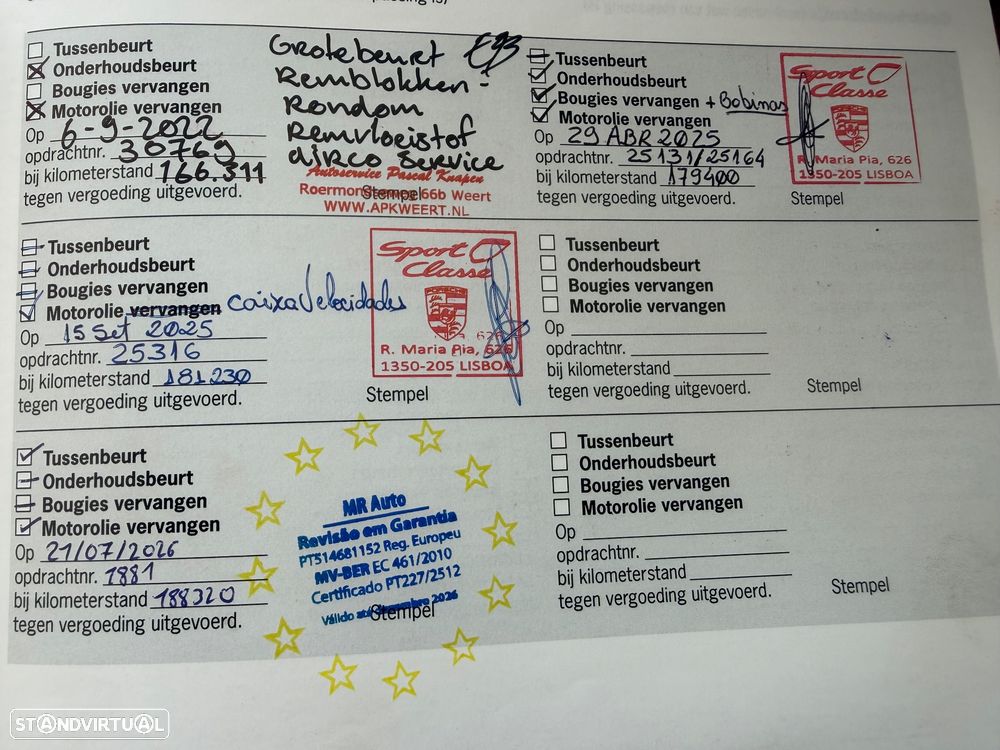 Tussenbeurt
Onderhoudsbeurt
Bougies vervangen
Motorolie vervangen
Op 6-9-2022
opdrachtnr. 30769
bij kilometerstand 166.311
tegen vergoeding uitgevoerd.
Grotebeurt
Remblokken -
Rondom
Remvloeistof
airco service
Autoservice Pascal Knapen
66b Weert
WWW.APKWEERT.NL
Stempel
Tussenbeurt
Onderhoudsbeurt
Bougies vervangen + Bobinas
Motorolie vervangen
Op 29 ABR 2025
opdrachtnr. 25131/25164
bij kilometerstand 179400
tegen vergoeding uitgevoerd.
Sport
Classe
PORSCHE
R. Maria Pia, 626
1350-205 LISBOA
Stempel
Tussenbeurt
Onderhoudsbeurt
Bougies vervangen
Motorolie vervangen caixa Velocidades
Op 15 Set 2025
opdrachtnr. 25316
bij kilometerstand 181230
tegen vergoeding uitgevoerd.
Sport
Classe
PORSCHE
R. Maria Pia, 626
1350-205 LISBOA
Stempel
Tussenbeurt
Onderhoudsbeurt
Bougies vervangen
Motorolie vervangen
Op
opdrachtnr.
bij kilometerstand
tegen vergoeding uitgevoerd.
Stempel
Tussenbeurt
Onderhoudsbeurt
Bougies vervangen
Motorolie vervangen
Op 21/07/2026
opdrachtnr. 1881
bij kilometerstand 188320
tegen vergoeding uitgevoerd.
MR Auto
Revisão em Garantia
PT514681152 Reg. Europeu
MV-BER EC 461/2010
Certificado PT227/2512
Válido até 2026
Stempel
Tussenbeurt
Onderhoudsbeurt
Bougies vervangen
Motorolie vervangen
Op
opdrachtnr.
bij kilometerstand
tegen vergoeding uitgevoerd.
Stempel
STANDVIRTUAL